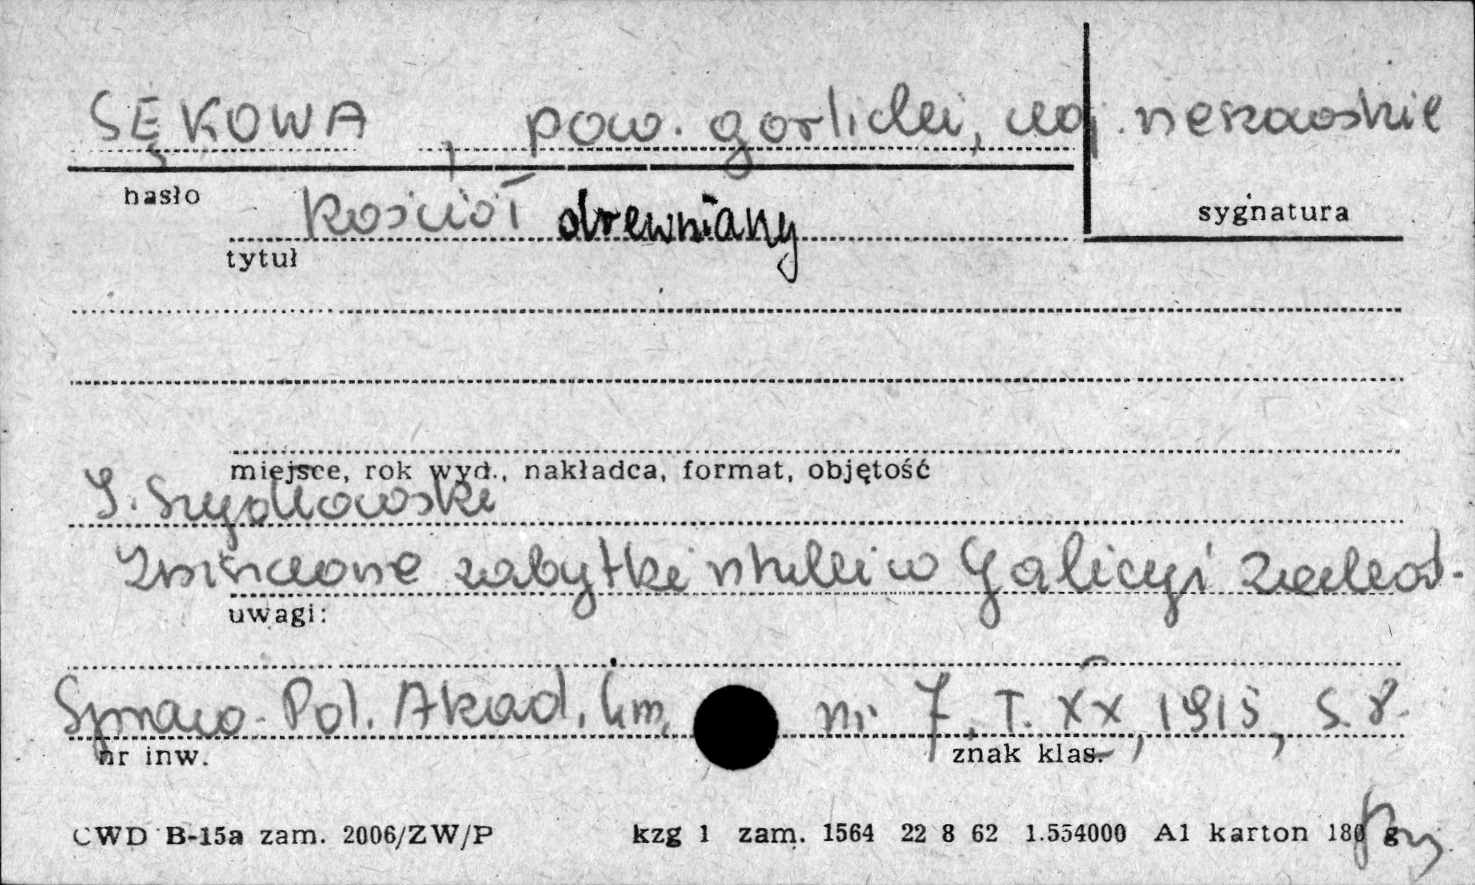 SĘKOWA, pow. gorlicki, woj. rzeszowskie
hasło
sygnatura
Kościół drewniany
tytuł
miejsce, rok wyd., nakładca, format, objętość
T. Szydłowski
Zniszczone zabytki sztuki w Galicyi zachod.
uwagi:
Spraw. Pol. Akad. Um. nr 7, T. XX, 1915, S. 8.
nr inw.
znak klas.
CWD B-15a zam. 2006/ZW/P
kzg 1 zam. 1564 22 8 62 1.554000 A1 karton 180 g